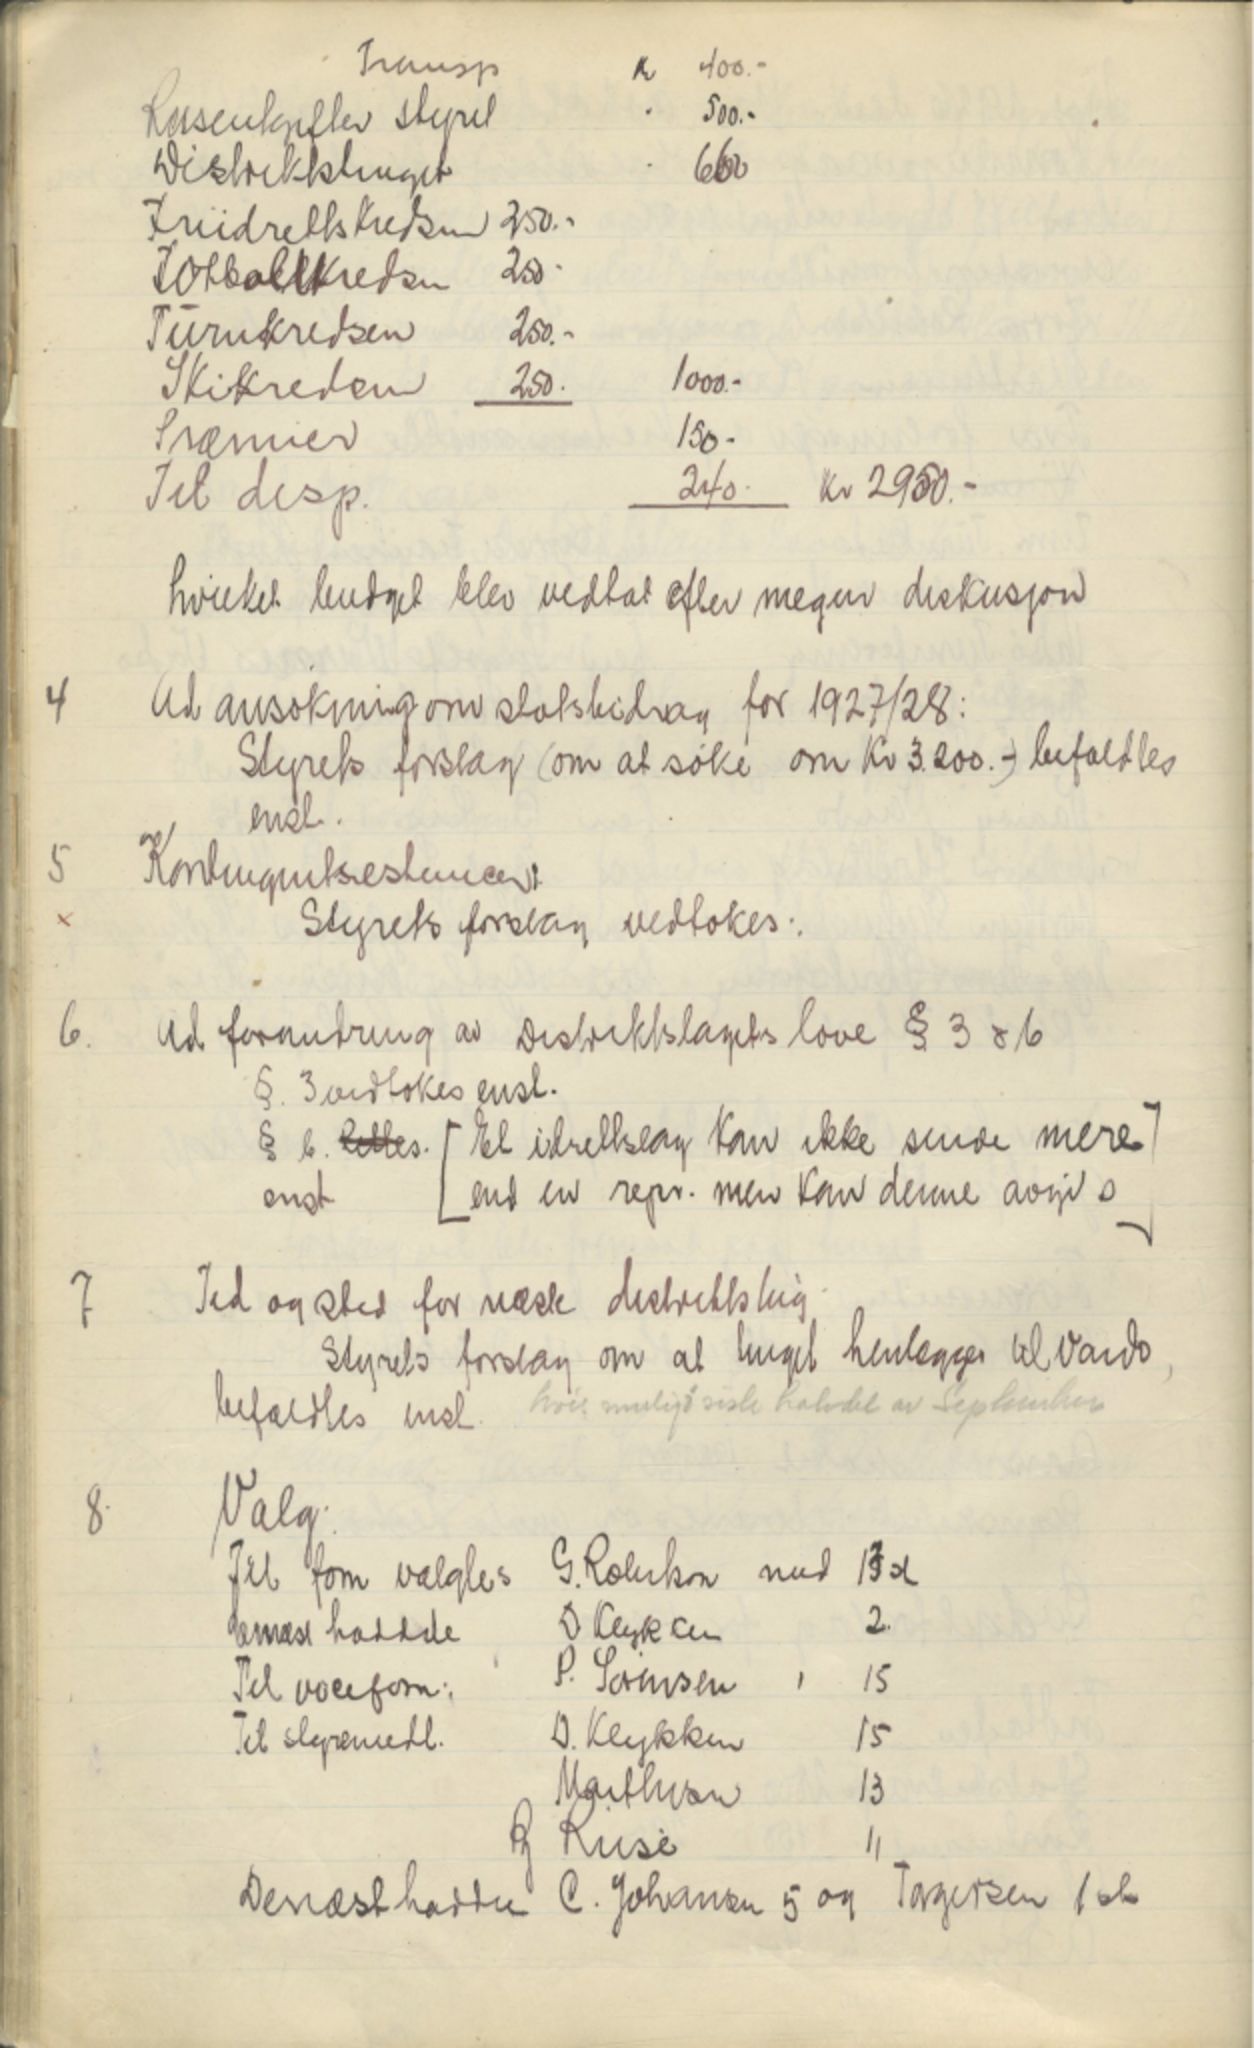 Transp kr 400.-
Reiseutgifter styret " 500.-
Distriktstinget " 660
Friidrettskredsen 250.-
Fotballkredsen 250.-
Turnkredsen 250.-
Skikredsen 250. 1000.-
Præmier 150-
Til disp. 240. Kr 2950.-
hvilket budget blev vedtat efter megen diskusjon
4 Ad ansökning om statsbidrag for 1927/28:
Styrets forslag (om at söke om Kr 3.200.-) befaldtes
enst.
5 Kontingentsrestancer:
x Styrets forslag vedtokes.
6. Ad forandring av Distriktslagets love § 3 & 6
§. 3 vedtokes enst.
§ 6. [Et idrettslag kan ikke sende mere]
enst [end en repr. men kan denne avgi
7 Tid og sted for næste distriktsting.
Styrets forslag om at tinget henlægges til Vardö,
befaldtes enst. hvis muligt siste halvdel av September
8. Valg:
Til form valgtes G. med 13 st
Dernæst hadde D Klykken 2.
Til viceform: P. Sörensen " 15
Til styremedl. D. Klykken 15
Mathisen 13
Riise 11
Dernæst hadde C. Johansen 5 og Torgersen 1 st